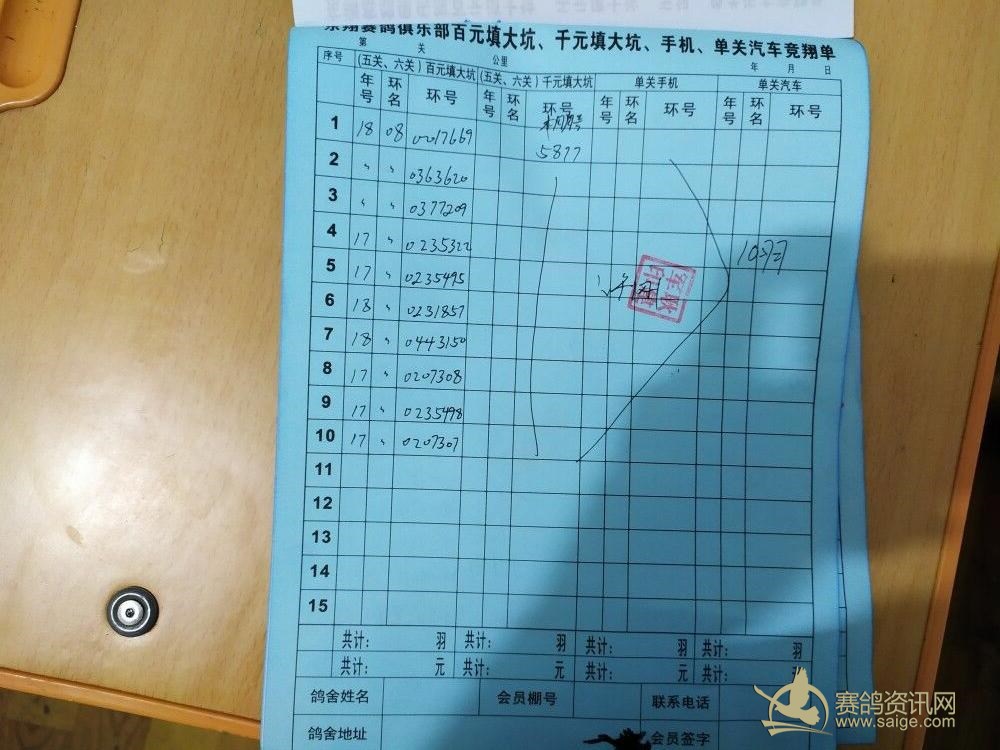 翔赛鸽俱乐部百元填大坑、千元填大坑、手机、单关汽车竞翔单
第 关 公里 年 月 日
序号 (五关、六关)百元填大坑 (五关、六关)千元填大坑 单关手机 单关汽车
年号 环名 环号 年号 环名 环号 年号 环名 环号 年号 环名 环号
1 18 08 0017669
5877
2 〃 〃 0363620
3 〃 〃 0377209
4 17 〃 0235322
10羽
5 17 〃 0235495
6 18 〃 0231857
7 18 〃 0443150
8 17 〃 0207308
9 17 〃 0235498
10 17 〃 0207307
11
12
13
14
15
共计: 羽 共计: 羽 共计: 羽 共计: 羽
共计: 元 共计: 元 共计: 元 共计:
鸽舍姓名 会员棚号 联系电话
鸽舍地址 会员签字
赛鸽资讯网
www.saige.com